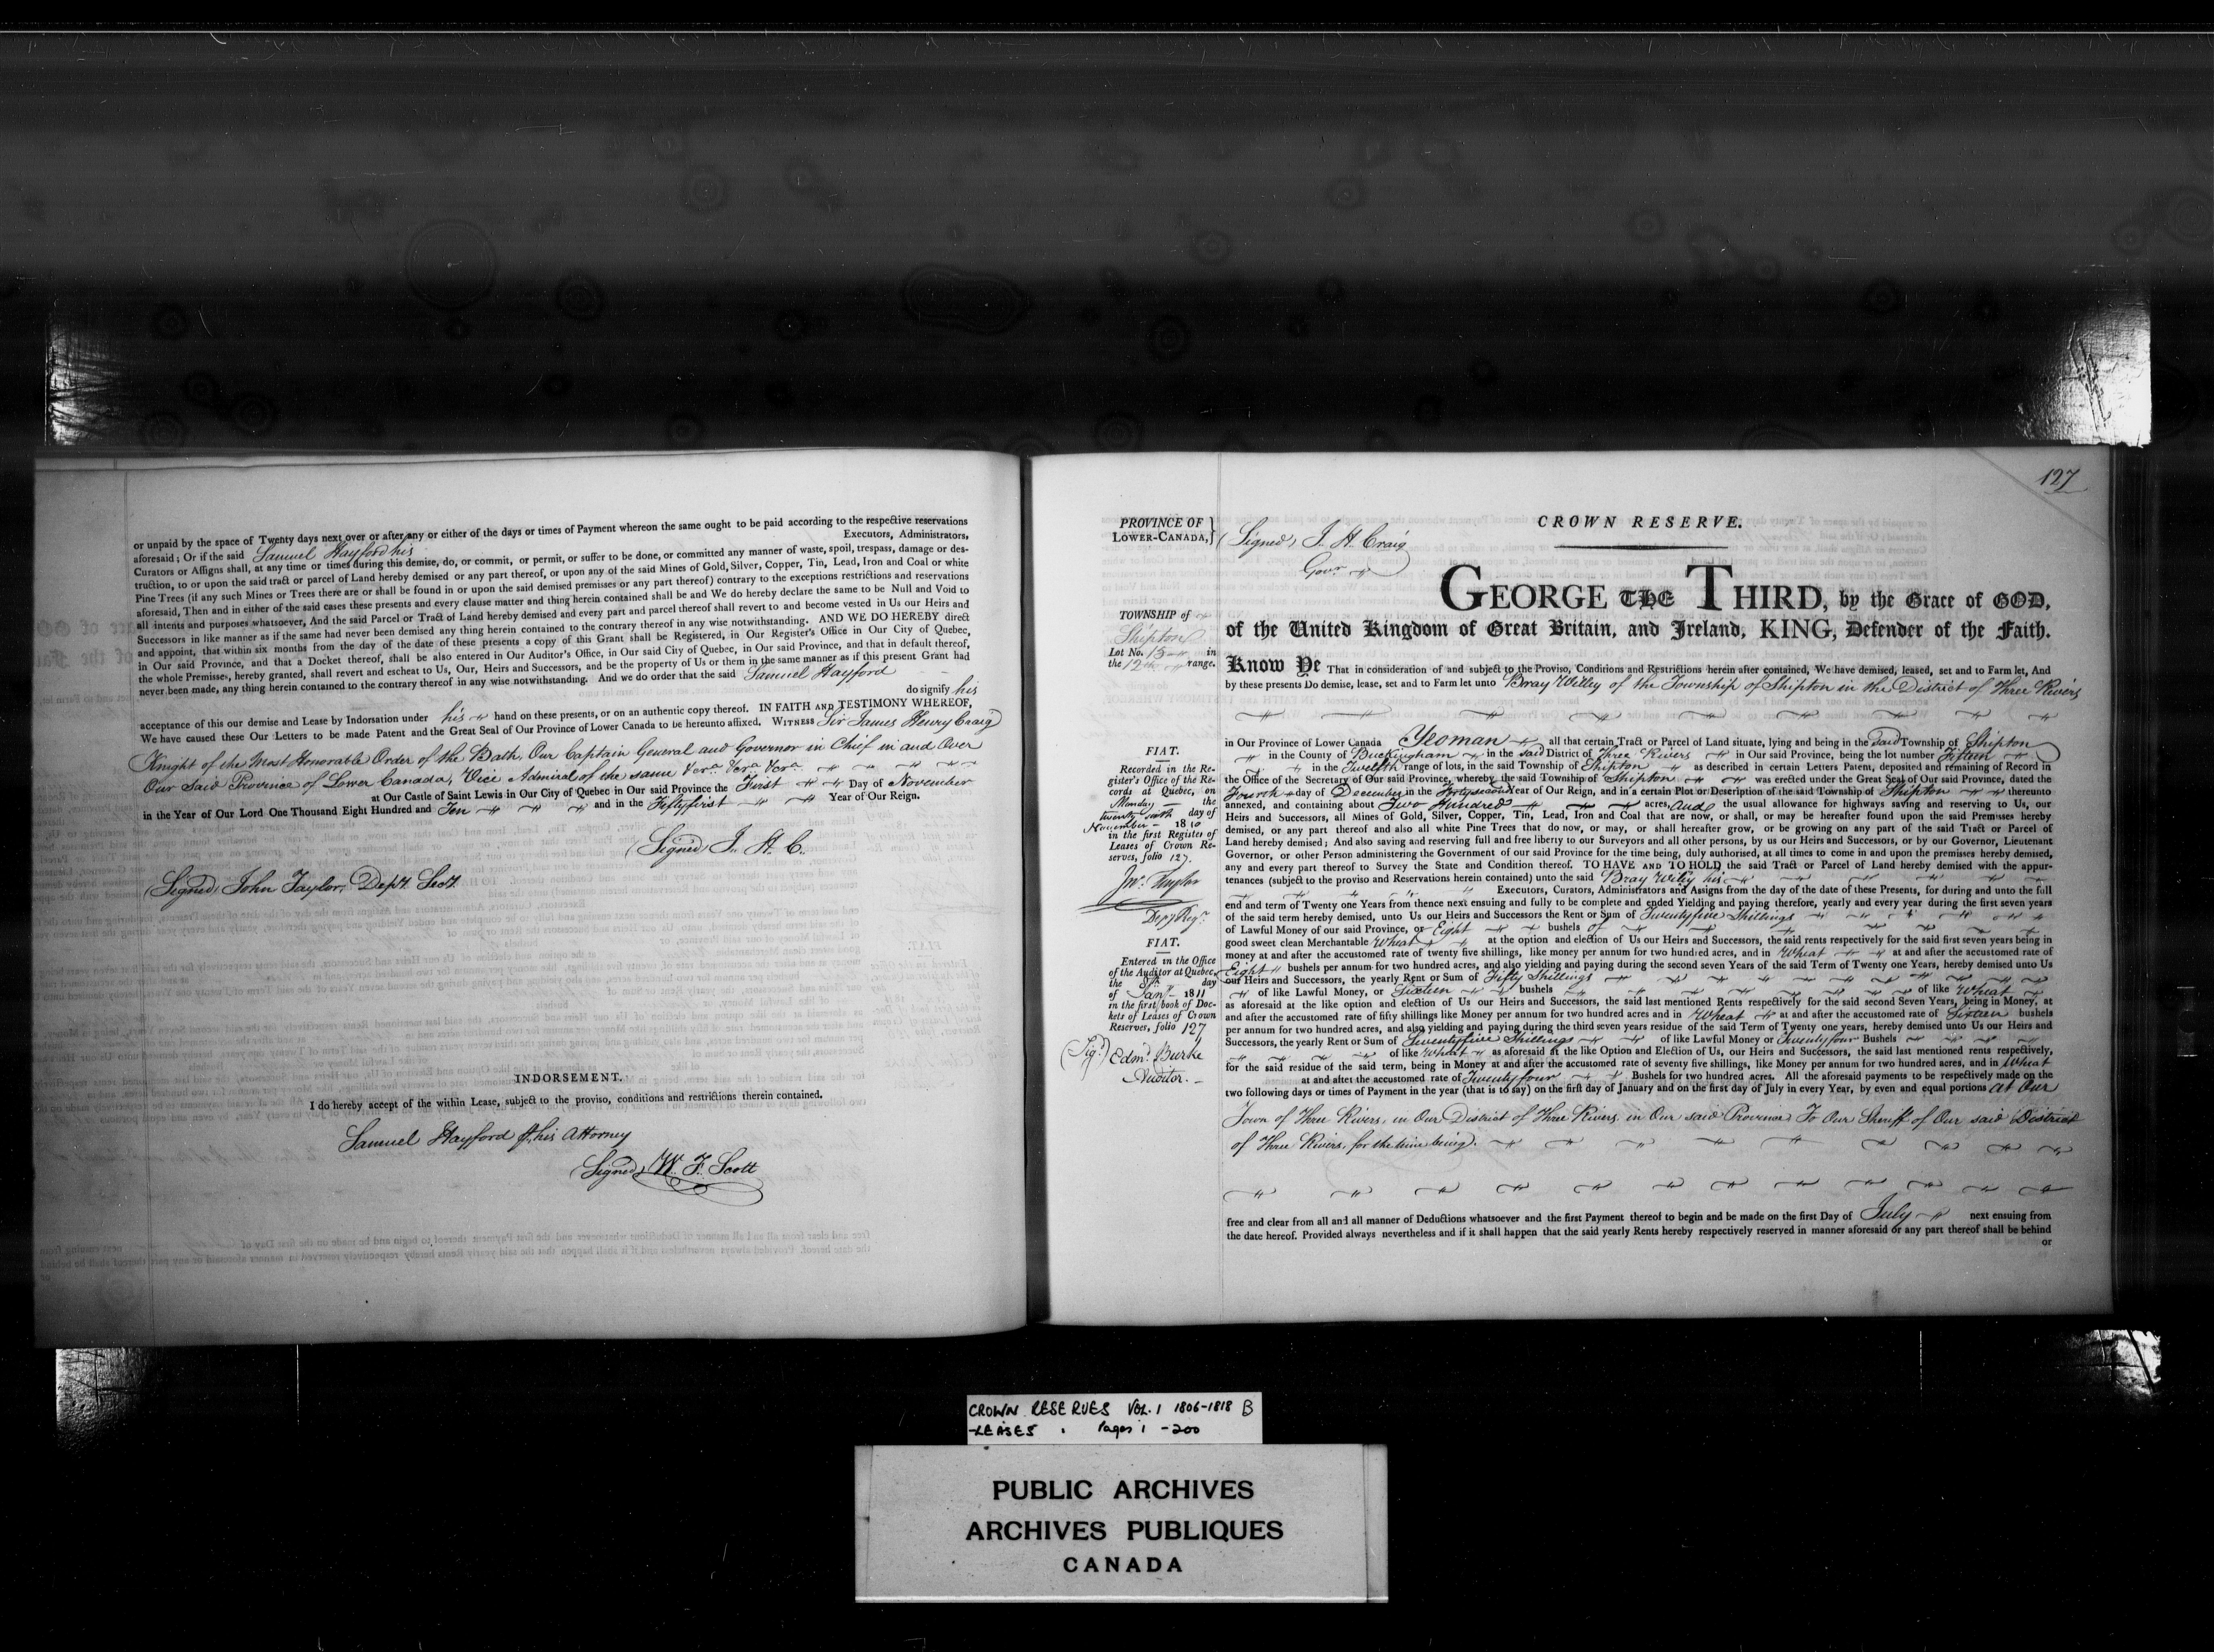 or unpaid by the space of Twenty days next over or after any or either of the days or times of Payment whereon the same ought to be paid according to the respective reservations
aforesaid; Or if the said Samuel Hayford his Executors, Administrators,
Curators or Assigns shall, at any time or times during this demise, do, or commit, or permit, or suffer to be done, or committed any manner of waste, spoil, trespass, damage or des-
truction, to or upon the said tract or parcel of Land hereby demised or any part thereof, or upon any of the said Mines of Gold, Silver, Copper, Tin, Lead, Iron and Coal or white
Pine Trees (if any such Mines or Trees there are or shall be found in or upon the said demised premises or any part thereof) contrary to the exceptions restrictions and reservations
aforesaid, Then and in either of the said cases these presents and every clause matter and thing herein contained shall be and We do hereby declare the same to be Null and Void to
all intents and purposes whatsoever, And the said Parcel or Tract of Land hereby demised and every part and parcel thereof shall revert to and become vested in Us our Heirs and
Successors in like manner as if the same had never been demised any thing herein contained to the contrary thereof in any wise notwithstanding. AND WE DO HEREBY direct
and appoint, that within six months from the day of the date of these presents a copy of this Grant shall be Registered, in Our Register's Office in Our City of Quebec,
in Our said Province, and that a Docket thereof, shall be also entered in Our Auditor's Office, in Our said City of Quebec, in Our said Province, and that in default thereof,
the whole Premisses, hereby granted, shall revert and escheat to Us, Our, Heirs and Successors, and be the property of Us or them in the same manner as if this present Grant had
never been made, any thing herein contained to the contrary thereof in any wise notwithstanding. And we do order that the said Samuel Hayford
do signify his
acceptance of this our demise and Lease by Indorsation under his hand on these presents, or on an authentic copy thereof. IN FAITH AND TESTIMONY WHEREOF,
We have caused these Our Letters to be made Patent and the Great Seal of Our Province of Lower Canada to be hereunto affixed. WITNESS Sir James Henry Craig
Knight of the Most Honorable Order of the Bath, Our Captain General and Governor in Chief in and Over
Our Said Province of Lower Canada, Vice Admiral of the same &cra. &cra. &cra.
at Our Castle of Saint Lewis in Our City of Quebec in Our said Province the First Day of November
in the Year of Our Lord One Thousand Eight Hundred and Ten and in the Fiftyfirst Year of Our Reign.
(Signed) J. H. C.
(Signed) John Taylor, Depy. Secy.
INDORSEMENT.
I do hereby accept of the within Lease, subject to the proviso, conditions and restrictions therein contained.
Samuel Hayford his Attorney
(Signed) W. F. Scott
127
PROVINCE OF
LOWER-CANADA,
(Signed) J. H. Craig
Govr.
CROWN RESERVE.
GEORGE THE THIRD, by the Grace of GOD,
of the United Kingdom of Great Britain, and Ireland, KING, Defender of the Faith.
TOWNSHIP of
Shipton
Lot No. 15 in
the 12th range.
Know Ye That in consideration of and subject to the Proviso, Conditions and Restrictions herein after contained, We have demised, leased, set and to Farm let, And
by these presents Do demise, lease, set and to Farm let unto Bray Willey of the Township of Shipton in the District of Three Rivers
in Our Province of Lower Canada Yeoman all that certain Tract or Parcel of Land situate, lying and being in the said Township of Shipton
in the County of Buckingham in the said District of Three Rivers in Our said Province, being the lot number Fifteen
in the Twelfth range of lots, in the said Township of Shipton as described in certain Letters Patent, deposited and remaining of Record in
the Office of the Secretary of Our said Province, whereby the said Township of Shipton was erected under the Great Seal of Our said Province, dated the
Fourth day of December in the Fortysecond Year of Our Reign, and in a certain Plot or Description of the said Township of Shipton thereunto
annexed, and containing about Two Hundred acres, and the usual allowance for highways saving and reserving to Us, our
Heirs and Successors, all Mines of Gold, Silver, Copper, Tin, Lead, Iron and Coal that are now, or shall, or may be hereafter found upon the said Premisses hereby
demised, or any part thereof and also all white Pine Trees that do now, or may, or shall hereafter grow, or be growing on any part of the said Tract or Parcel of
Land hereby demised; And also saving and reserving full and free liberty to our Surveyors and all other persons, by us our Heirs and Successors, or by our Governor, Lieutenant
Governor, or other Person administering the Government of our said Province for the time being, duly authorised, at all times to come in and upon the premises hereby demised,
any and every part thereof to Survey the State and Condition thereof. TO HAVE AND TO HOLD the said Tract or Parcel of Land hereby demised with the appur-
tenances (subject to the proviso and Reservations herein contained) unto the said Bray Wiley his
Executors, Curators, Administrators and Assigns from the day of the date of these Presents, for during and unto the full
end and term of Twenty one Years from thence next ensuing and fully to be complete and ended Yielding and paying therefore, yearly and every year during the first seven years
of the said term hereby demised, unto Us our Heirs and Successors the Rent or Sum of Twentyfive Shillings
of Lawful Money of our said Province, or Eight bushels of
good sweet clean Merchantable Wheat at the option and election of Us our Heirs and Successors, the said rents respectively for the said first seven years being in
money at and after the accustomed rate of twenty five shillings, like money per annum for two hundred acres, and in Wheat at and after the accustomed rate of
Eight bushels per annum for two hundred acres, and also yielding and paying during the second seven Years of the said Term of Twenty one Years, hereby demised unto Us
our Heirs and Successors, the yearly Rent or Sum of Fifty Shillings
of like Lawful Money, or Sixteen bushels of like Wheat
as aforesaid at the like option and election of Us our Heirs and Successors, the said last mentioned Rents respectively for the said second Seven Years, being in Money, at
and after the accustomed rate of fifty shillings like Money per annum for two hundred acres and in Wheat at and after the accustomed rate of Sixteen bushels
per annum for two hundred acres, and also yielding and paying during the third seven years residue of the said Term of Twenty one years, hereby demised unto Us our Heirs and
Successors, the yearly Rent or Sum of Seventyfive Shillings of like Lawful Money or Twentyfour Bushels
of like Wheat as aforesaid at the like Option and Election of Us, our Heirs and Successors, the said last mentioned rents respectively,
for the said residue of the said term, being in Money at and after the accustomed rate of seventy five shillings, like Money per annum for two hundred acres, and in Wheat
at and after the accustomed rate of Twentyfour Bushels for two hundred acres. All the aforesaid payments to be respectively made on the
two following days or times of Payment in the year (that is to say) on the first day of January and on the first day of July in every Year, by even and equal portions at Our
Town of Three Rivers, in Our District of Three Rivers in Our said Province, To Our Sheriff of Our said District
of Three Rivers, for the time being.
free and clear from all and all manner of Deductions whatsoever and the first Payment thereof to begin and be made on the first Day of July next ensuing from
the date hereof. Provided always nevertheless and if it shall happen that the said yearly Rents hereby respectively reserved in manner aforesaid or any part thereof shall be behind
or
FIAT.
Recorded in the Re-
gister's Office of the Re-
cords at Quebec, on
Monday the
twenty sixth day of
November 1810
in the first Register of
Leases of Crown Re-
serves, folio 127.
Jno. Taylor
Depy Regr.
FIAT.
Entered in the Office
of the Auditor at Quebec,
the 8th day
of Jany 1811
in the first book of Doc-
kets of Leases of Crown
Reserves, folio 127
(Sigd.) Edmd. Burke
Auditor.
CROWN RESERVES VOL. 1 1806-1818 B
-LEASES Pages 1 -200
PUBLIC ARCHIVES
ARCHIVES PUBLIQUES
CANADA